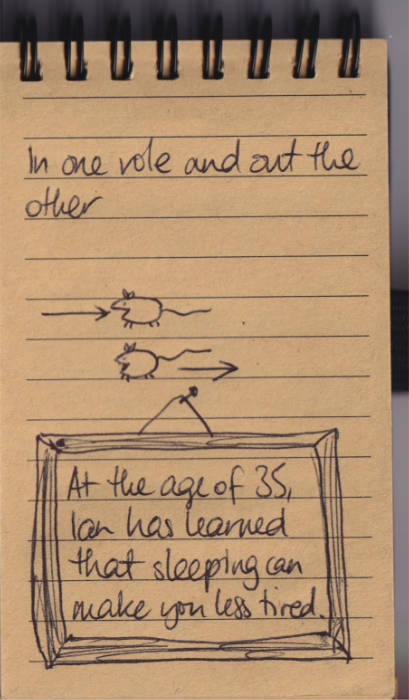 In one vole and out the
other
At the age of 35,
Ian has learned
that sleeping can
make you less tired.